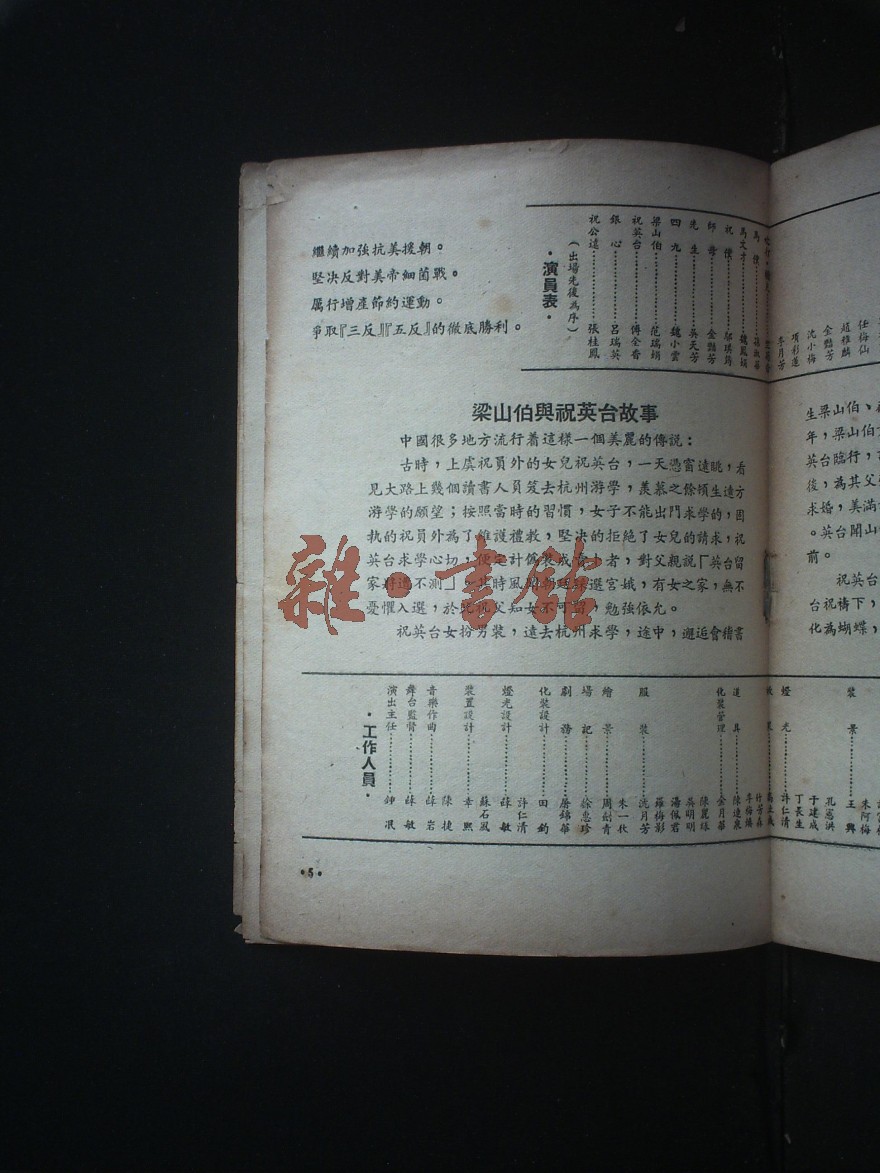 繼續加強抗美援朝。
堅決反對美帝細菌戰。
厲行增產節約運動。
爭取『三反』『五反』的徹底勝利。
·演員表·
(出場先後為序)
祝公遠………張桂鳳
銀心………呂瑞英
祝英台………傅全香
梁山伯………范瑞娟
四九………魏小雲
先生………吳天芳
師母………金豔芳
祝僕
馬文才………魏鳳娟
馬僕
李月芳
項彩蓮
沈小梅
金豔芳
趙雅麟
任梅仙
梁山伯與祝英台故事
中國很多地方流行着這樣一個美麗的傳說:
古時,上虞祝員外的女兒祝英台,一天憑窗遠眺,看
見大路上幾個讀書人負笈去杭州游學,羨慕之餘頓生遠方
游學的願望;按照當時的習慣,女子不能出門求學的,固
執的祝員外為了維護禮教,堅決的拒絕了女兒的請求,祝
英台求學心切,便定計偽裝成 者,對父親說「英台留
家將遭不測」。其時風 選宮娥,有女之家,無不
憂懼入選,於是祝父知女不可留,勉強依允。
祝英台女扮男裝,遠去杭州求學,途中,邂逅會稽書
生梁山伯、
年,梁山伯
英台臨行,
後,為其父
求婚,美滿
。英台聞山
前。
祝英
台祝禱下,
化為蝴蝶,
·工作人員·
演出主任………鍾泯
舞台監督………薛敏
音樂作曲………薛岩
陳捷
裝置設計………幸熙
蘇石風
燈光設計………薛敏
許仁清
化裝設計………田鈞
劇務………屠錦華
場記………徐惠珍
繪景………周劍青
朱一狄
服裝………沈月芳
羅梅影
湯佩君
吳明明
陳麗絲
化裝管理………金月華
道具………陳連泉
李梅鳩
竹芳森
效果
燈光………許仁清
丁長生
于建成
孔憲洪
裝景………王興
朱阿梅
·5·
雜·書館